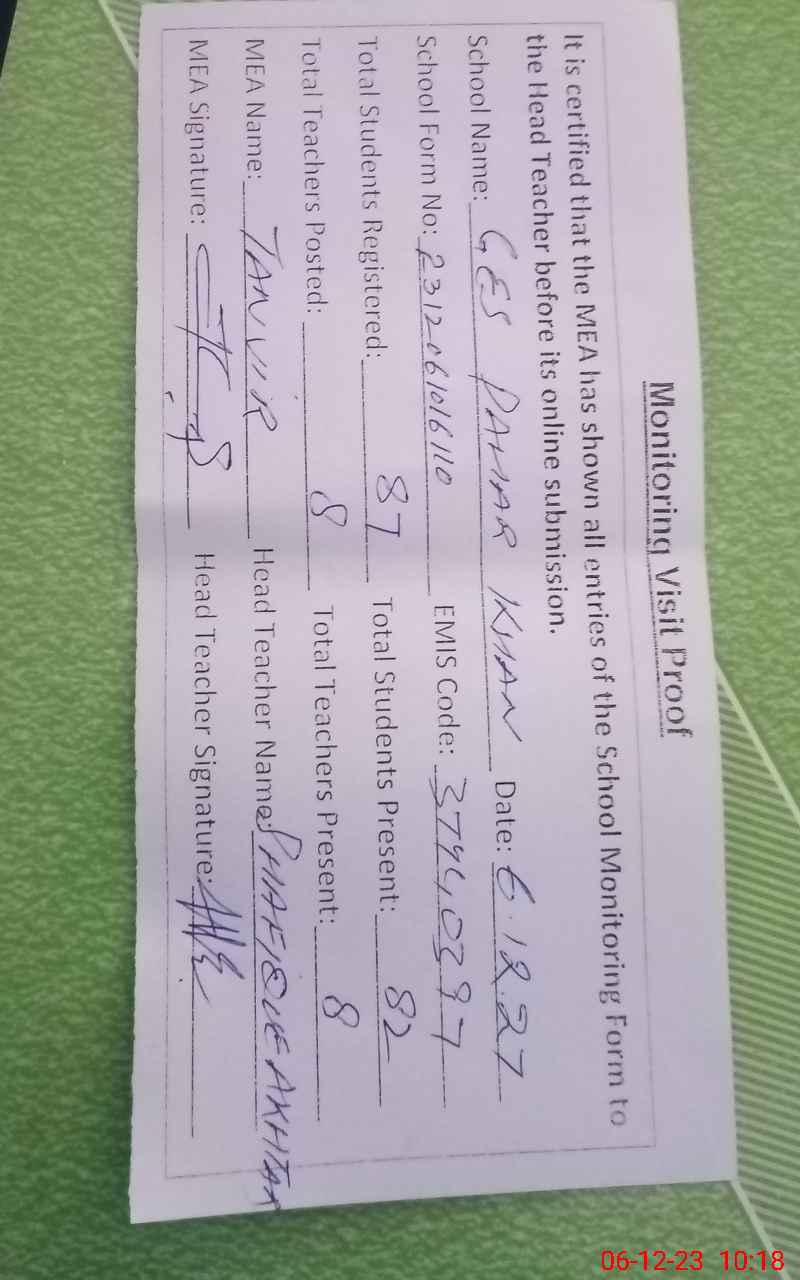 Monitoring Visit Proof
It is certified that the MEA has shown all entries of the School Monitoring Form to
the Head Teacher before its online submission.
School Name: GES PAHAR KHAN Date: 6.12.27
School Form No: 2312061016110 EMIS Code: 37440397
Total Students Registered: 87 Total Students Present: 82
Total Teachers Posted: 8 Total Teachers Present: 8
MEA Name: TANVIR Head Teacher Name: SHAFIQUE AKHTAR
MEA Signature: Head Teacher Signature:
06-12-23 10:18